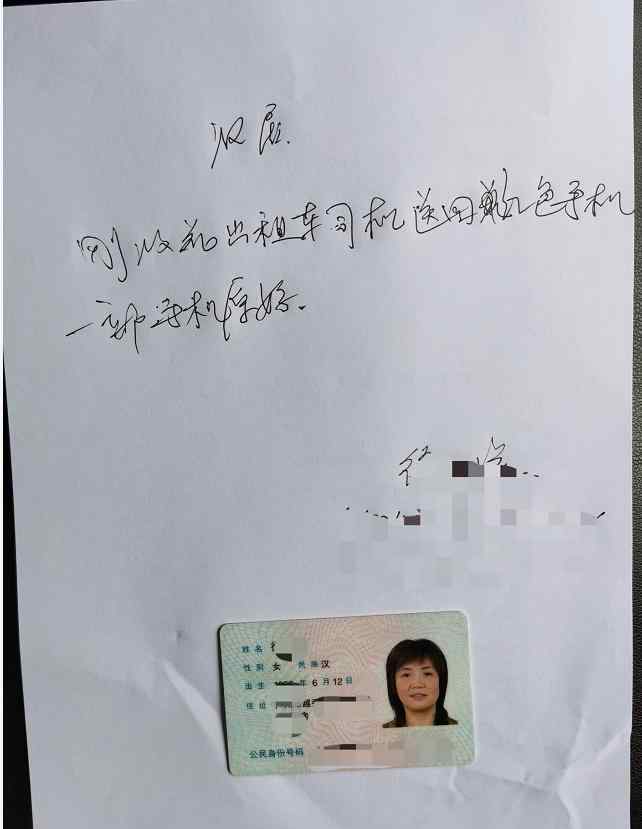 收据.
刚收到出租车司机送回色手机
一部手机完好.
姓名
性别 女 民族 汉
出生 年 6 月 12 日
住址
公民身份号码